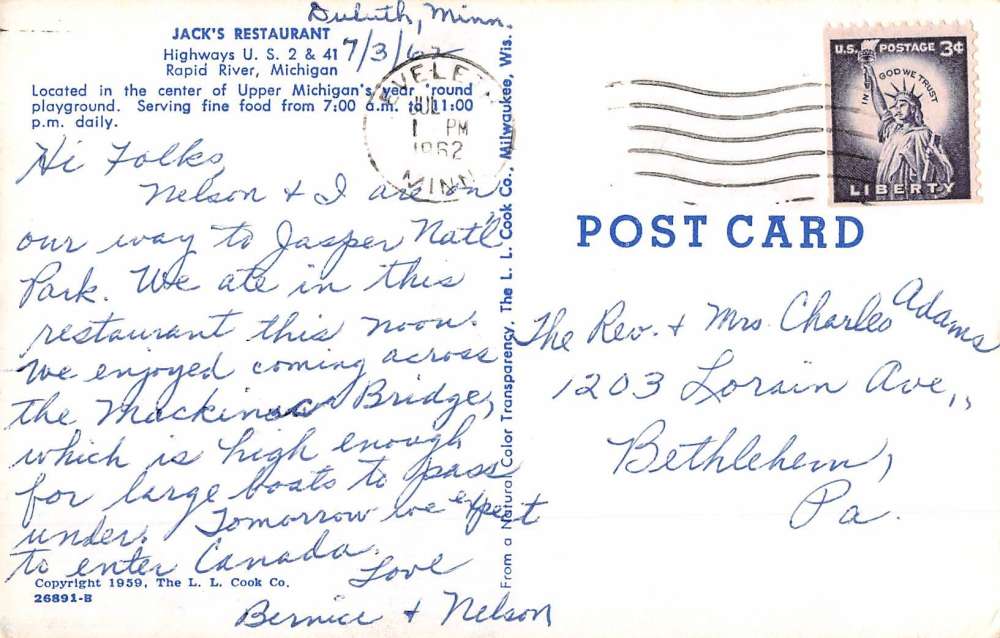 Duluth, Minn.
7/3/62
JACK'S RESTAURANT
Highways U. S. 2 & 41
Rapid River, Michigan
Located in the center of Upper Michigan's year 'round
playground. Serving fine food from 7:00 a.m. to 11:00
p.m. daily.
Hi Folks,
Nelson & I are on
our way to Jasper Nat'l
Park. We ate in this
restaurant this noon.
We enjoyed coming across
the Mackinac Bridge,
which is high enough
for large boats to pass
under. Tomorrow we expect
to enter Canada.
Love
Bernice & Nelson
Copyright 1959, The L. L. Cook Co.
26891-B
From a Natural Color Transparency. The L. L. Cook Co., Milwaukee, Wis.
EVELETH
JUL
1 PM
1962
MINN
U.S. POSTAGE 3¢
IN GOD WE TRUST
LIBERTY
POST CARD
The Rev. & Mrs. Charles Adams
1203 Lorain Ave.,
Bethlehem,
Pa.